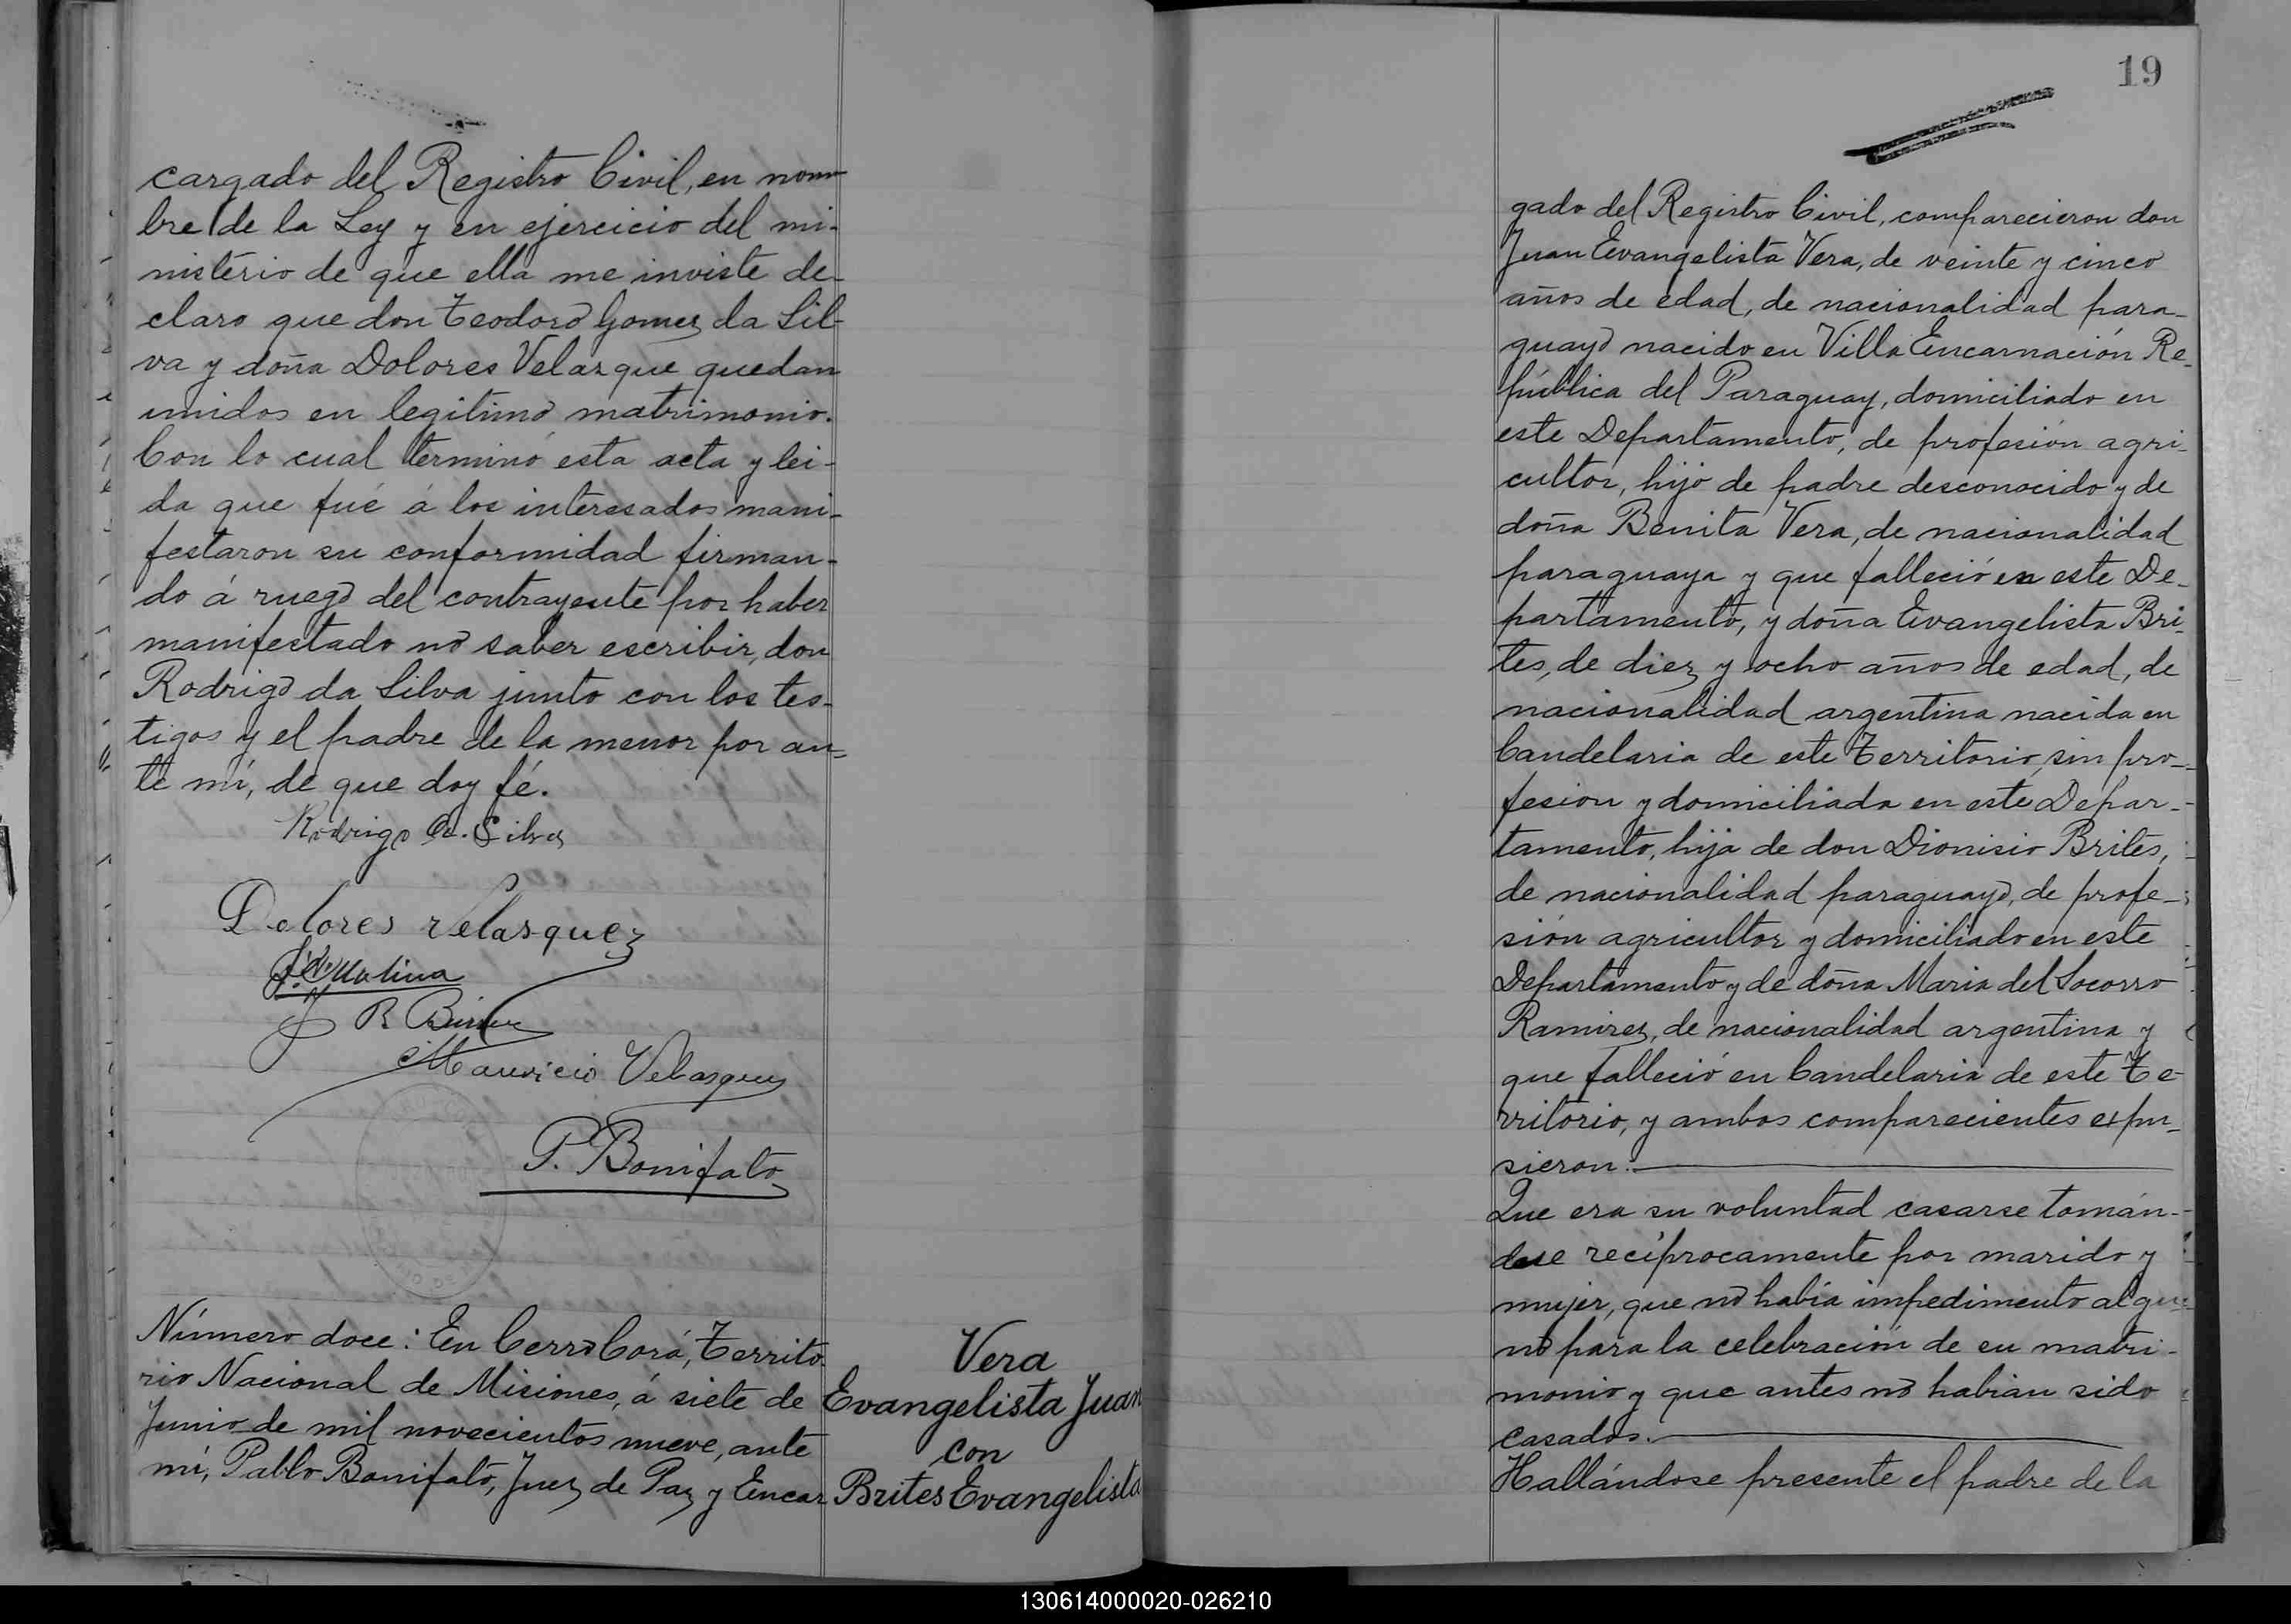 cargado del Registro Civil, en nom-
bre de la Ley y en ejercicio del mi-
nisterio de que ella me inviste de-
claro que don Teodoro Gomez da Sil-
va y doña Dolores Velazque quedan
unidos en legitimo matrimonio.
Con lo cual terminó esta acta y lei-
da que fué á los interesados mani-
festaron su conformidad firman-
do á ruego del contrayente por haber
manifestado no saber escribir, don
Rodrigo da Silva junto con los tes-
tigos y el padre de la menor por an-
te mí, de que doy fé.
Rodrigo Da. Silva
Dolores Velasquez
Molina
R
Mauricio Velasquez
P. Bonifato
Número doce: En Cerro Corá, Territo-
rio Nacional de Misiones, á siete de
Junio de mil novecientos nueve, ante
mí, Pablo Bonifato, Juez de Paz y Encar
Vera
Evangelista Juan
con
Brites Evangelista
19
gado del Registro Civil, comparecieron don
Juan Evangelista Vera, de veinte y cinco
años de edad, de nacionalidad para-
guayo nacido en Villa Encarnación Re-
pública del Paraguay, domiciliado en
este Departamento, de profesión agri-
cultor, hijo de padre desconocido y de
doña Benita Vera, de nacionalidad
paraguaya y que falleció en este De-
partamento, y doña Evangelista Bri-
tes, de diez y ocho años de edad, de
nacionalidad argentina nacida en
Candelaria de este Territorio, sin pro-
fesion y domiciliada en este Depar-
tamento, hija de don Dionisio Brites,
de nacionalidad paraguayo, de profe-
sión agricultor y domiciliado en este
Departamento y de doña Maria del Socorro
Ramirez, de nacionalidad argentina y
que falleció en Candelaria de este Te-
rritorio, y ambos comparecientes expu-
sieron:
Que era su voluntad casarse tomán-
dose recíprocamente por marido y
mujer, que no había impedimento algu-
no para la celebración de su matri-
monio y que antes no habian sido
casados.
Hallándose presente el padre de la
130614000020-026210